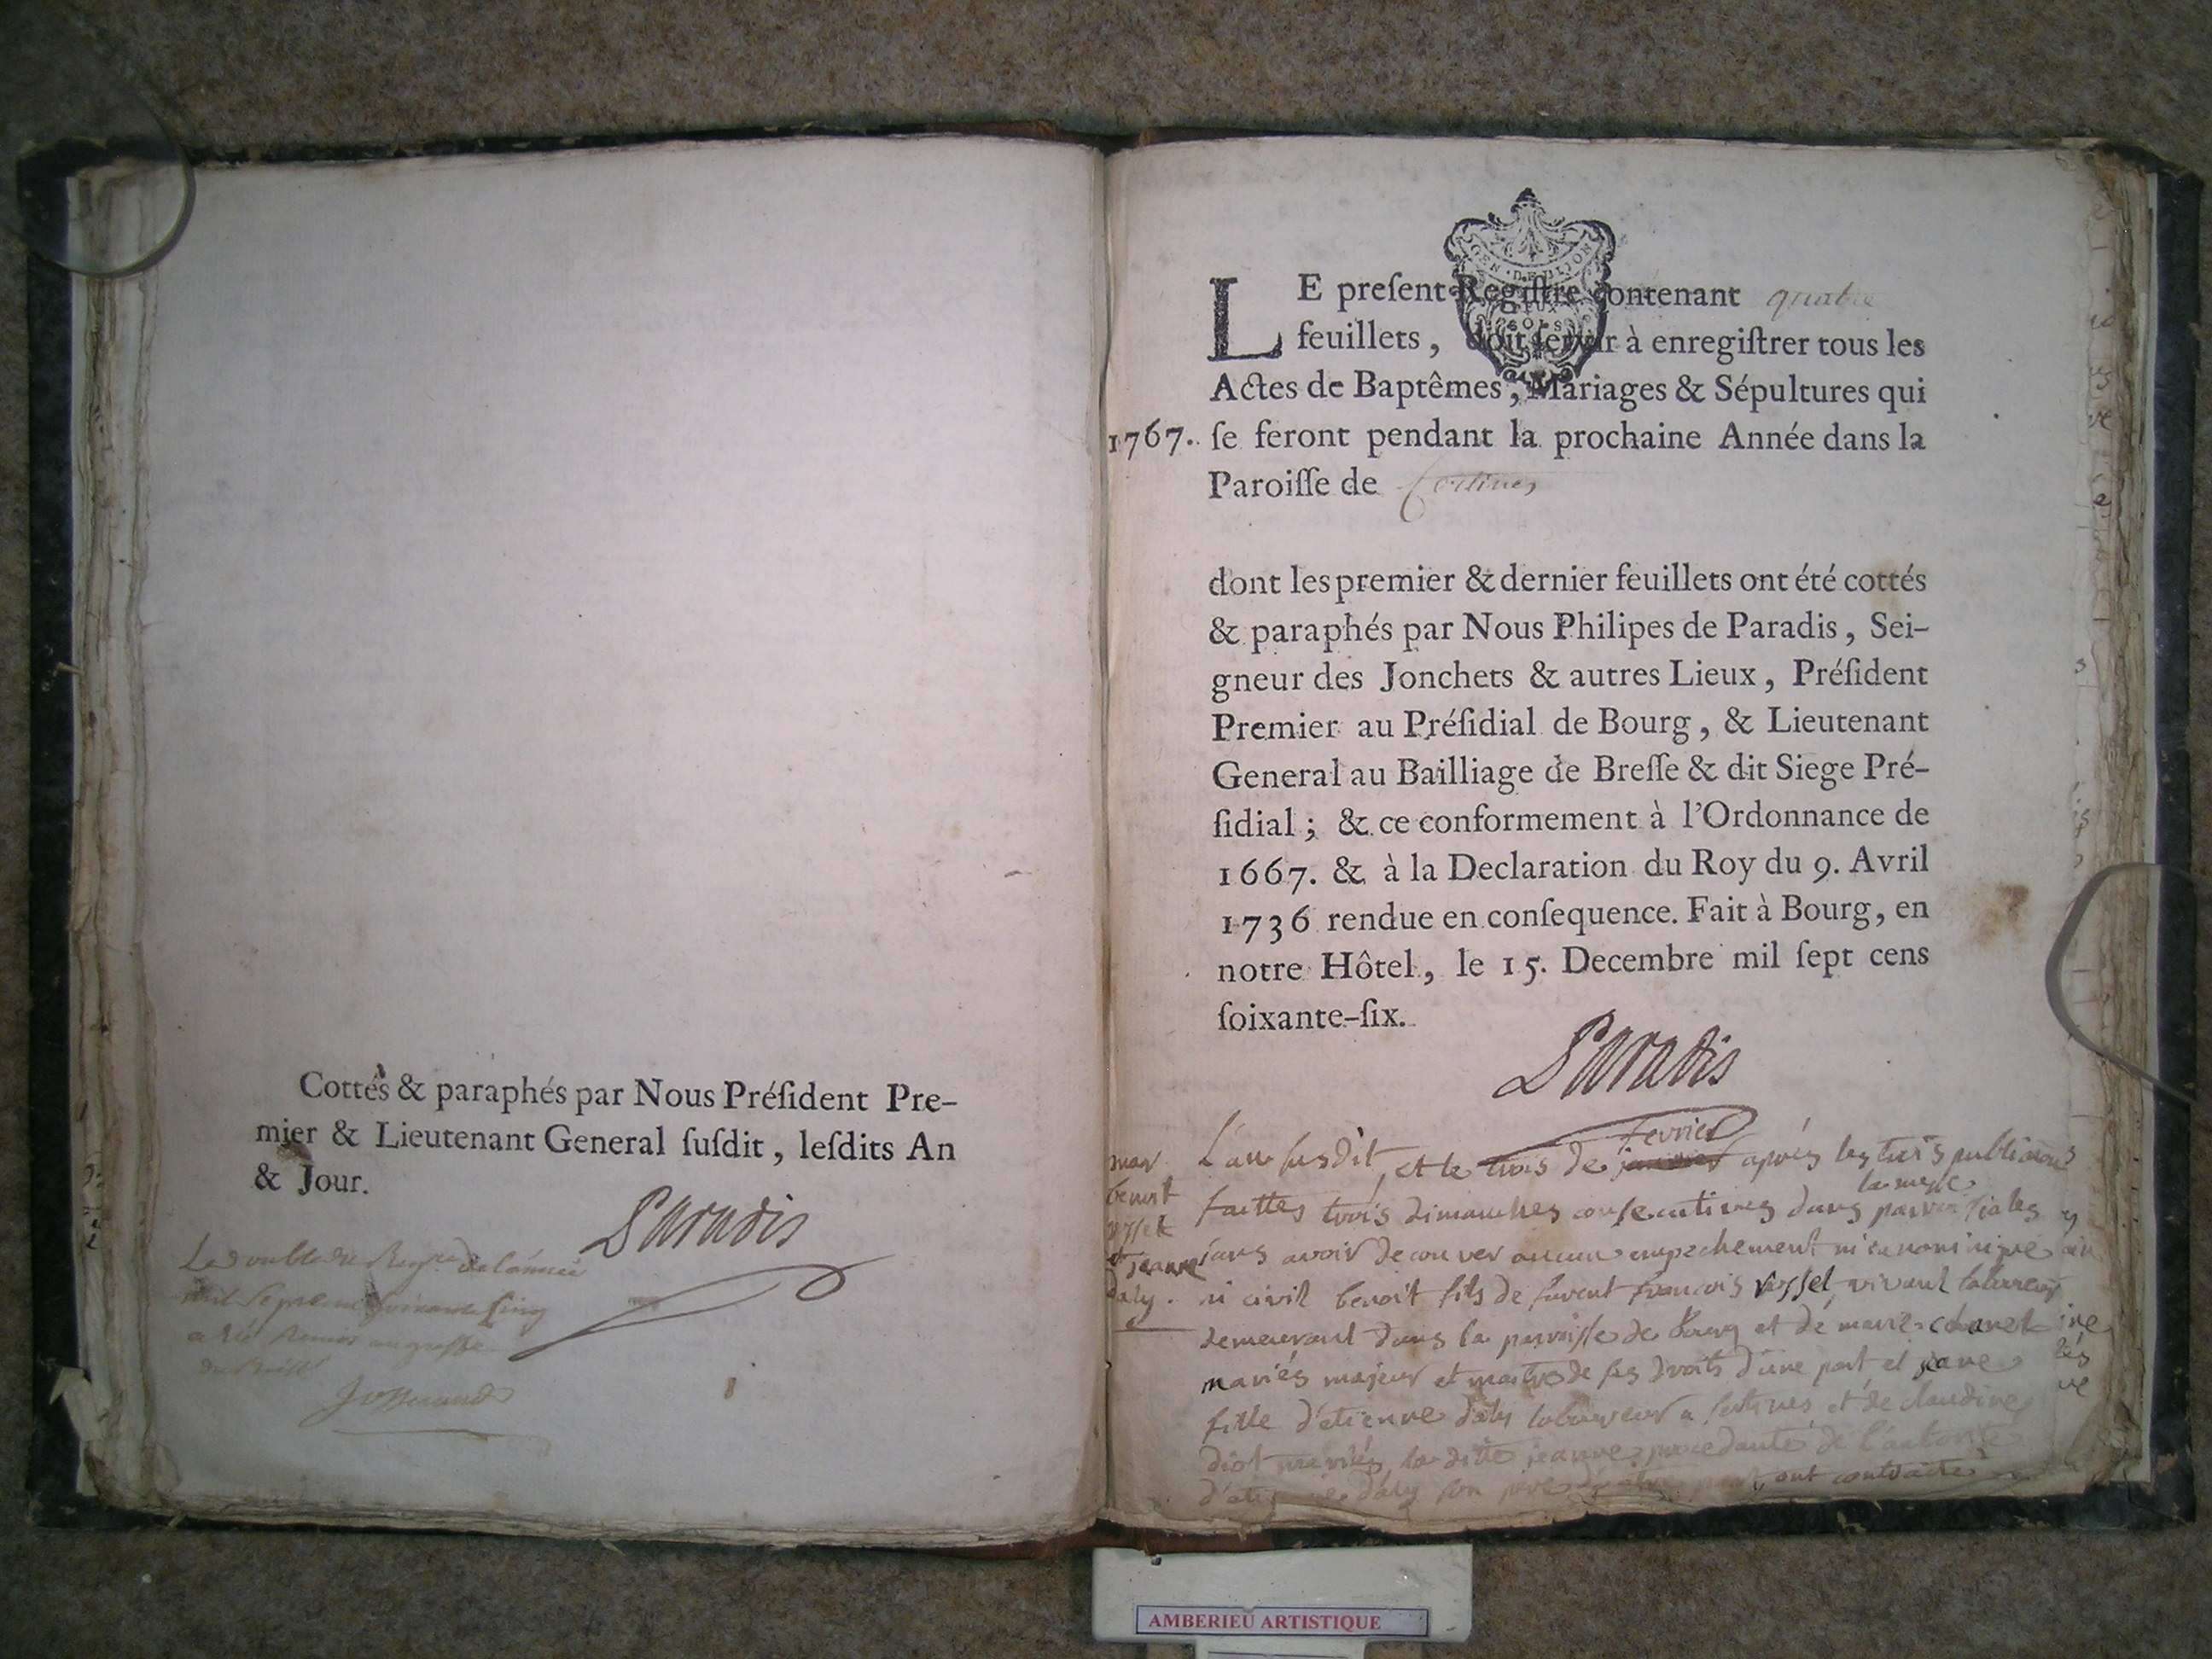 Cottés & paraphés par Nous Préſident Pre-
mier & Lieutenant General ſuſdit, leſdits An
& Jour.
Paradis
Le double du de l'année
mil Sept cent soixante cinq
a été remis au greffe
GEN · DE DIJON
SOLS
LE preſent Regiſtre contenant quatre
feuillets, doit ſervir à enregiſtrer tous les
Actes de Baptêmes, Mariages & Sépultures qui
1767. ſe feront pendant la prochaine Année dans la
Paroiſſe de
dont les premier & dernier feuillets ont été cottés
& paraphés par Nous Philipes de Paradis, Sei-
gneur des Jonchets & autres Lieux, Préſident
Premier au Préſidial de Bourg, & Lieutenant
General au Bailliage de Breſſe & dit Siege Pré-
ſidial; & ce conformement à l'Ordonnance de
1667. & à la Declaration du Roy du 9. Avril
1736 rendue en conſequence. Fait à Bourg, en
notre Hôtel, le 15. Decembre mil ſept cens
ſoixante-ſix.
Paradis
mar
benoit
et jeanne
daly.
fevrier
L'an susdit, et le trois de janvier après les trois publications
la messe
faittes trois dimanches consecutives dans paroissiales
sans avoir decouver aucun empechement ni canonique
ni civil benoit fils de francois vivant laboureur
demeurant dans la paroisse de et de marie
mariés majeur et maitre de ses droits d'une part et jeane
fille d'etienne daly laboureur a et de claudine
diot mariés, la ditte jeanne procedante de l'autorité
d'etienne daly son pere d'autre part, ont contracté
AMBERIEU ARTISTIQUE